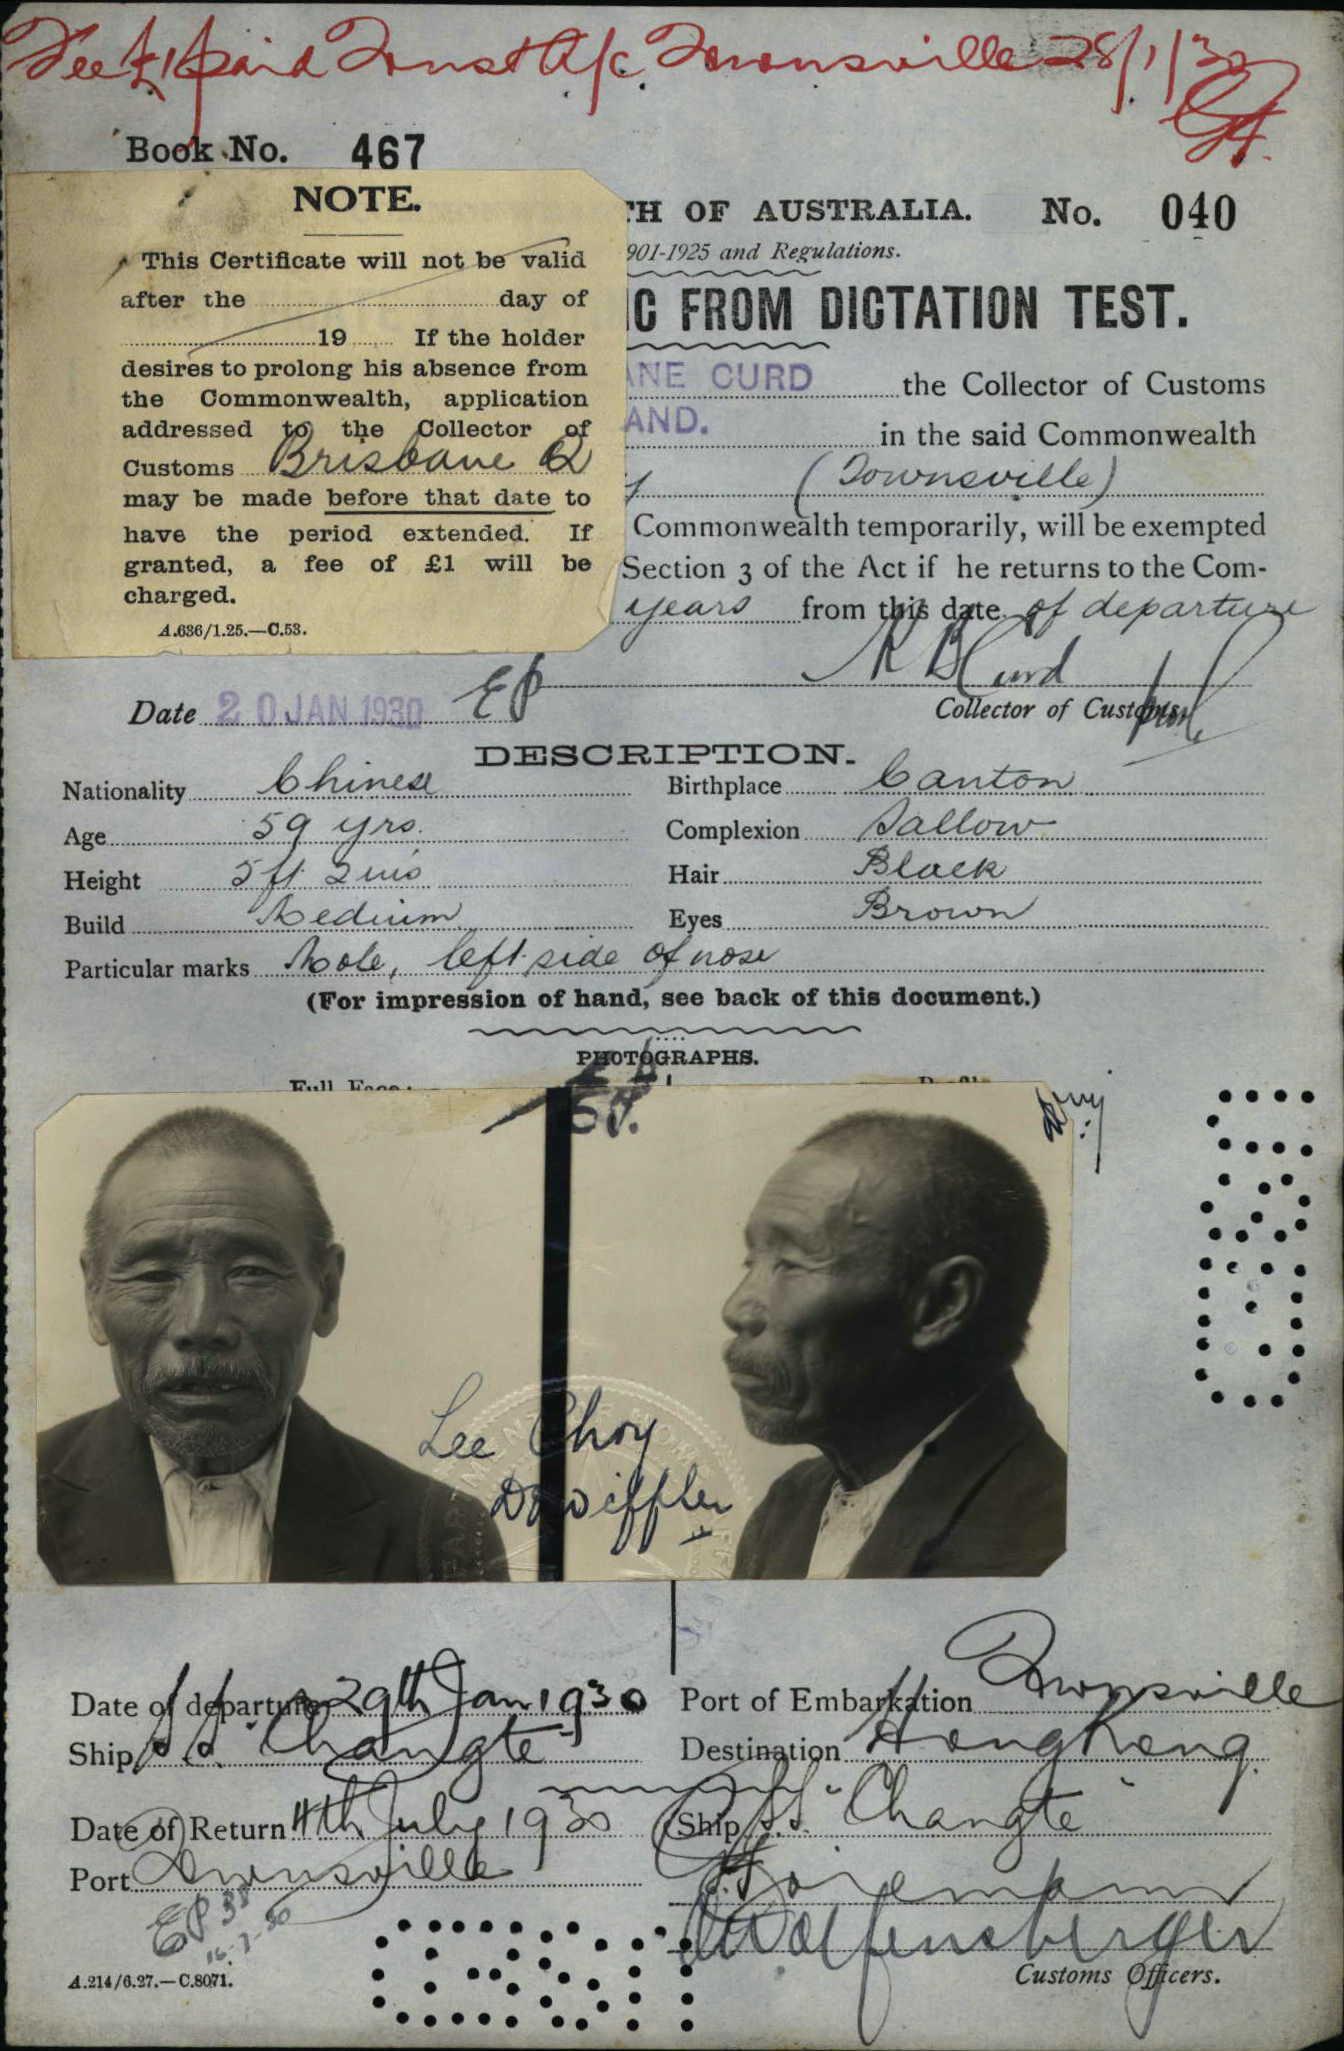 Fee £1 paid Trust A/c Townsville 28/1/30
Book No. 467
NOTE.
This Certificate will not be valid
after the day of
19 If the holder
desires to prolong his absence from
the Commonwealth, application
addressed to the Collector of
Customs Brisbane Q
may be made before that date to
have the period extended. If
granted, a fee of £1 will be
charged.
A.636/1.25.—C.53.
TH OF AUSTRALIA. No. 040
901-1925 and Regulations.
FROM DICTATION TEST.
ANE CURD the Collector of Customs
AND. in the said Commonwealth
(Townsville)
Commonwealth temporarily, will be exempted
Section 3 of the Act if he returns to the Com-
years from this date of departure
Date 20 JAN 1930 EP
Collector of Customs
DESCRIPTION.
Nationality Chinese Birthplace Canton
Age 59 yrs. Complexion Sallow
Height 5 ft 2 ins Hair Black
Build Medium Eyes Brown
Particular marks Mole, left side of nose
(For impression of hand, see back of this document.)
PHOTOGRAPHS.
Full Face:
Lee Choy
Date of departure 29th Jan 1930 Port of Embarkation Townsville
Ship S.S. Changte Destination HongKong.
Date of Return 4th July 1930 Ship S.S. "Changte"
Port Townsville
EP 38
16-7-30
Wolfensberger
A.214/6.27.—C.8071. Customs Officers.